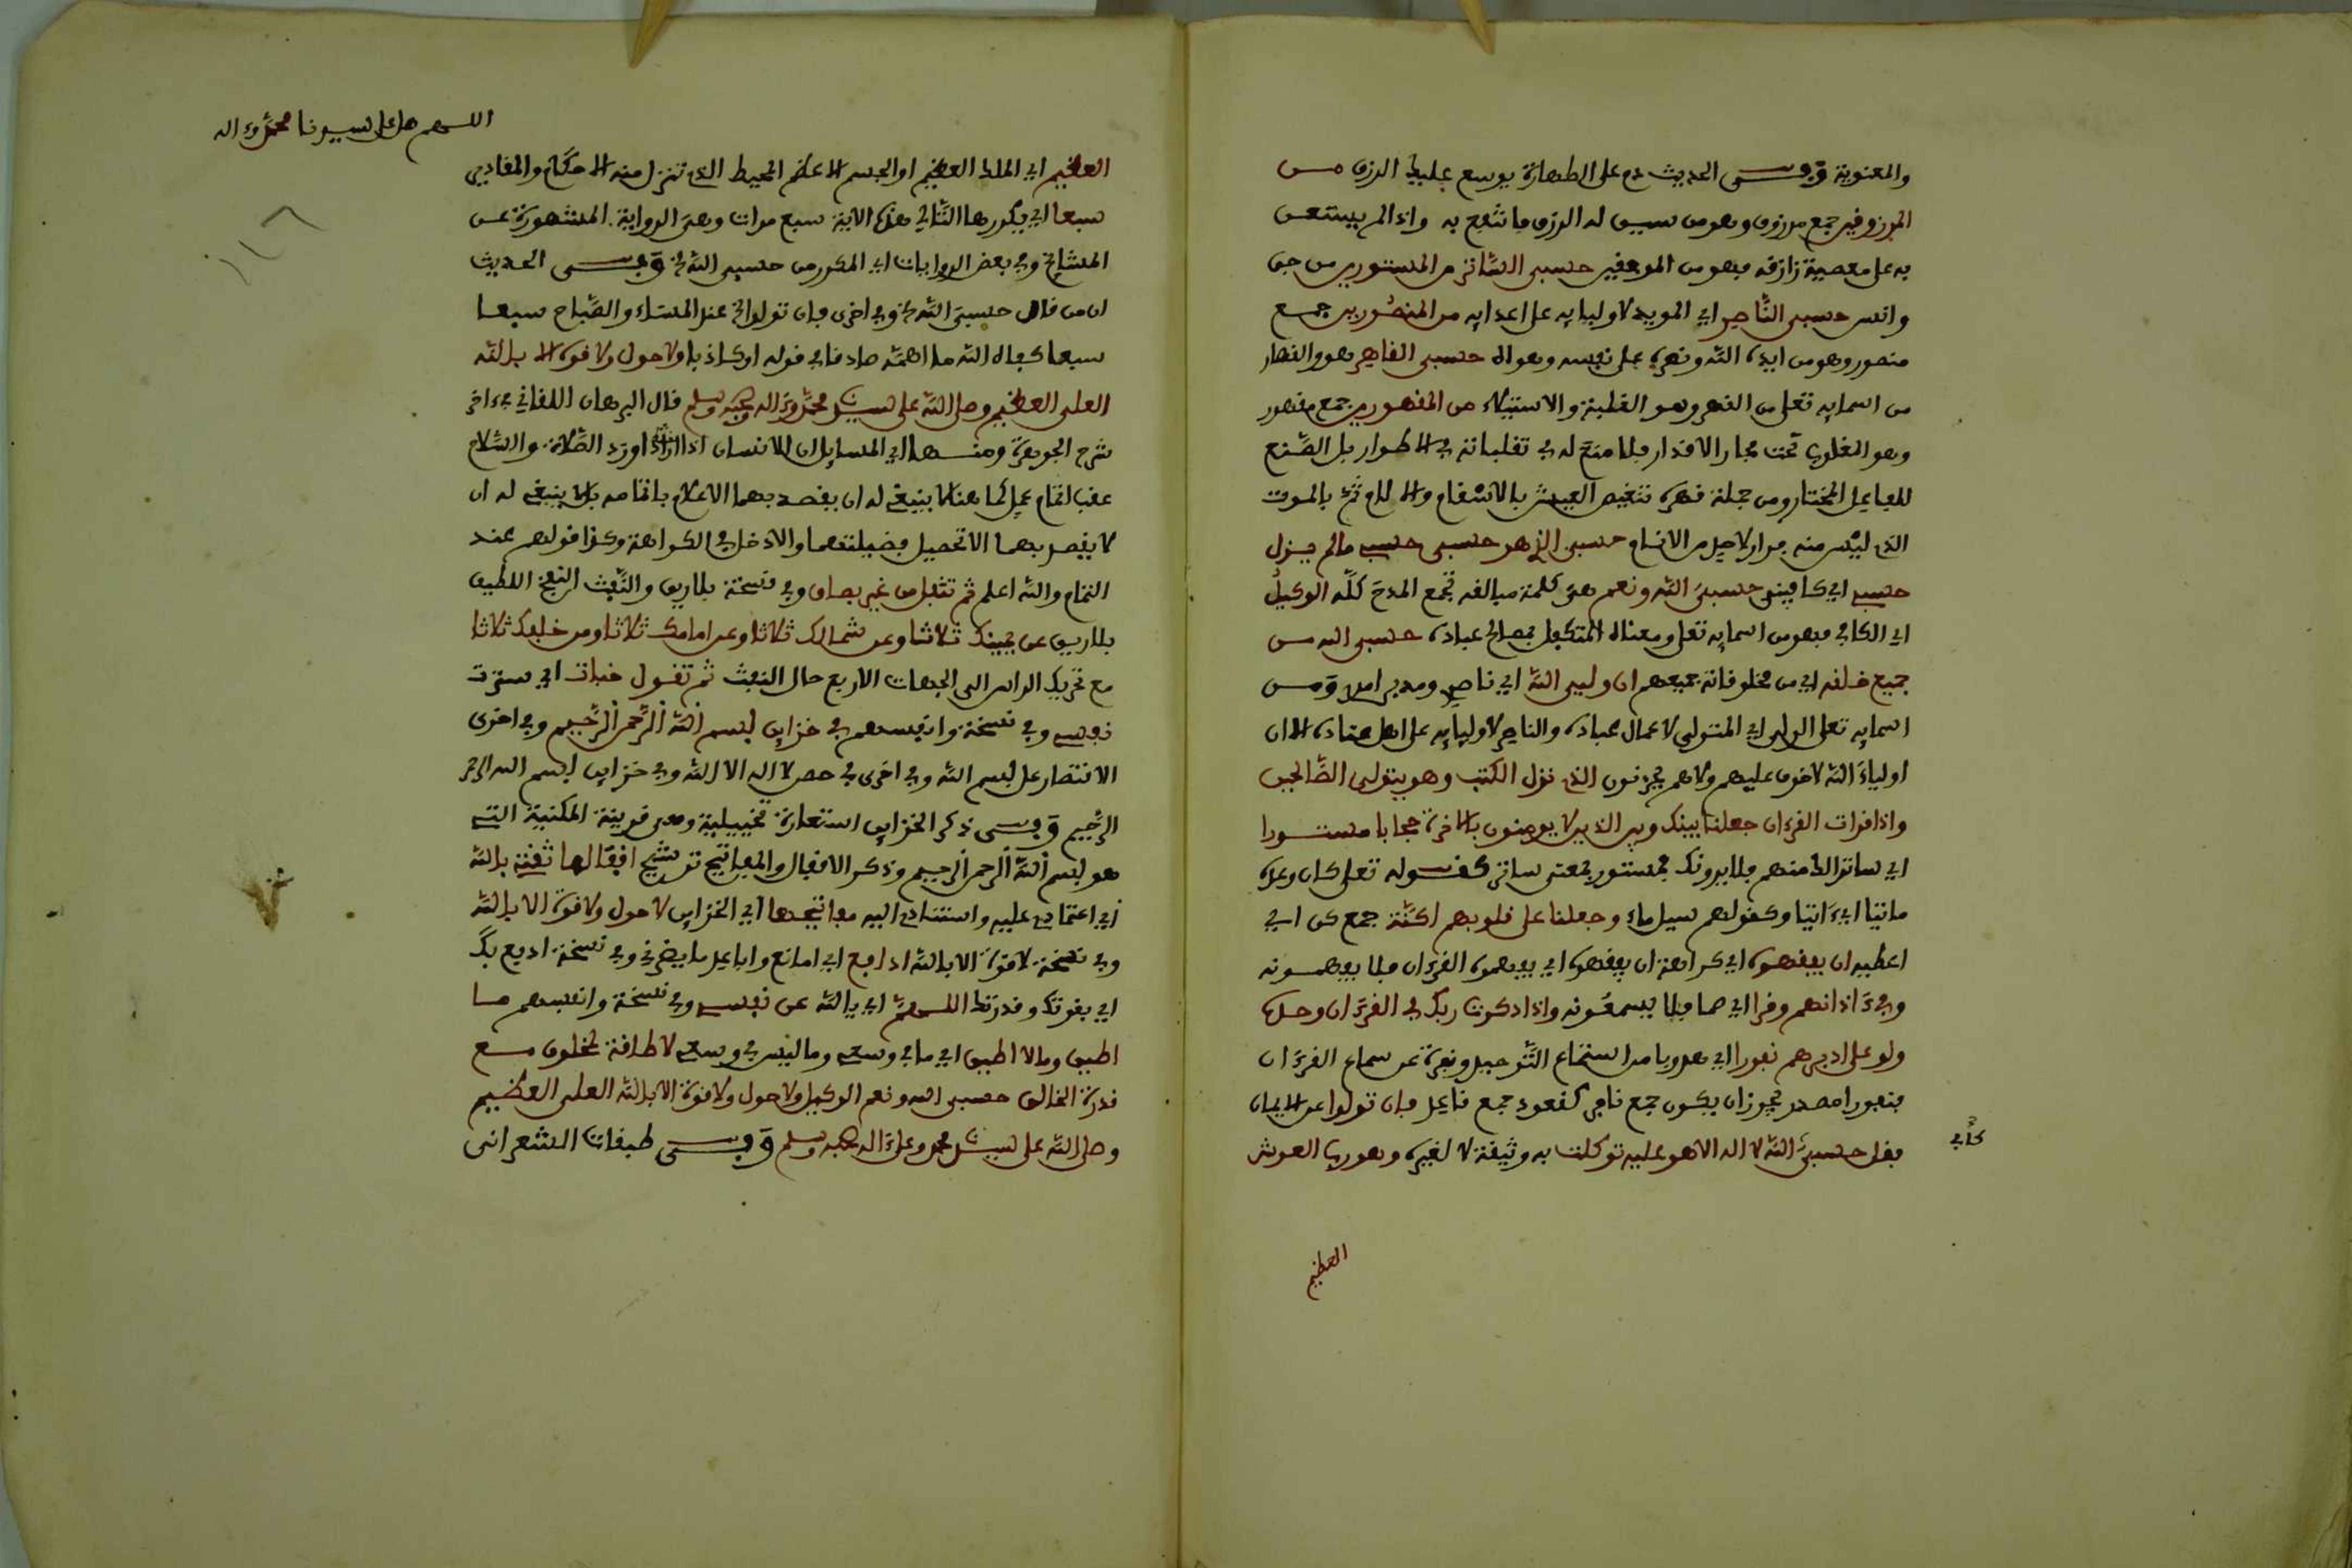 والمعنوية وفى الحديث دم على الطهارة يوسع عليك الرزق من
المرزوقين جمع مرزوق وهو من سيق له الرزق ما ينتفع به واذا لم يستعن
به على معصية رازقه فهو من الموفقين حسبى الساتر من المستورين من جن
وانس حسبى النّاصر اي المويد لاوليايه على اعدايه من المنصورين جمع
منصور وهو من ايده الله ونصره على نفسه وهواه حسبى القاهر هو والقهار
من اسمايه تعلى من القهر وهو الغلبة والاستيلاء من المقهورين جمع مقهور
وهو المغلوب تحت مجار الاقدار فلا منع له في تقلباته في الاطوار بل الصّنع
للفاعل المختار ومن جملة قهره تنغيص العيش بالاسقام والالام ثم بالموت
الذي ليس منه فرار لاحد من الانام حسبى الذي هو حسبى حسبي مالم يزل
حسبي اي كافيني حسبي الله ونعم هي كلمة مبالغه تجمع المدح كله الوكيل
اي الكافي فهو من اسمايه تعلى ومعناه المتكفل بمصالح عباده حسبى الله من
جميع خلقه اي من مخلوقاته جميعهم ان وليى الله اي ناصر ومدبر امر ومن
اسمايه تعلى الولى اي المتولى لاعمال عباده والناصر لاوليايه على اهل عناده الا ان
اولياء الله لا خوف عليهم ولا هم يحزنون الذي نزل الكتب وهو يتولى الصّالحين
واذا قرات القرءان جعلنا بينك وبين الذين لا يومنون بالاخرة حجابا مستورا
اي ساترا لك منهم فلا يرونك فمستور بمعنى ساتر كقوله تعلى كان وعده
ماتيا اي ءاتيا وكقولهم سيل ماء وجعلنا على قلوبهم اكنّة جمع كن اي
اغطية ان يفقهوه اي كراهة ان يفقهوه اي يفهموه القرءان فلا يفهمونه
وفي ءاذانهم وقرا اي صما فلا يسمعونه واذا ذكرت ربك في القرءان وحده
ولو على ادبرهم نفورا اي هروبا من استماع التّوحيد ونفرة عن سماع القرءان
فنفورا مصدر يجوز ان يكون جمع نافر كقعود جمع قاعد فان تولوا عن الايمان
فقل حسبي الله لا اله الا هو عليه توكلت به وثيقة لا لغيره وهو رب العرش
العظيم
اللهم صل على سيدنا محمد وءاله
العظيم اي الملك العظيم او الجسم الاعظم المحيط الذي تنزل منه الاحكام والمقادير
سبعا اي يكررها التّالي هذه الاية سبع مرات وهى الرواية المشهورة عن
المشايخ وفي بعض الروايات اي المكرر من حسبي الله الخ وفى الحديث
ان من قال حسبي الله الخ وفي اخرى فان تولوا الخ عند المساء والصّباح سبعا
سبعا كفاه الله ما اهمّه صادقا في قوله او كاذبا ولا حول ولا قوة الا بالله
العلى العظيم وصلى الله على سيدنا محمد وءاله وصحبه وسلم قال البرهان اللقاني في ءاخر
شرح الجوهرة ومنها اي المسايل ان الانسان اذا اورد الصّلاة والسّلام
عقب اتمام عمل كما هنا لا ينبغي له ان يقصد بهما الاعلام باتمامه بل لا ينبغي له ان
لا يقصد بهما الا تحصيل فضيلتهما والا دخل في الكراهة وكذا قولهم عند
التمام والله اعلم ثم تتفل من غير بصاق وفي نسخة بلا ريق والنّفث النفخ اللطيف
بلا ريق عن يمينك ثلاثا وعن شمالك ثلاثا وعن امامك ثلاثا ومن خلفك ثلاثا
مع تحريك الراس الى الجهات الاربع حال النفث ثم تقول خبات اي سترت
نفسي وفي نسخة وانفسهم في خزاين بسم الله الرّحمن الرّحيم وفي اخرى
الاقتصار على بسم الله وفي اخرى في حصن لا اله الا الله وفي خزاين بسم الله الرحمن
الرّحيم وفى ذكر الخزاين استعارة تخييلية وهى قرينة المكنية التي
هو بسم الله الرحمن الرحيم وذكر الاقفال والمفاتيح ترشيح اقفالها ثقتي بالله
اي اعتمادي عليه واستنادي اليه مفاتيحها اي الخزاين لا حول ولا قوة الا بالله
وفي نسخة لا قوة الا بالله ادافع اي امانع وافاعل ما يضرني وفي نسخة ادفع بك
اي بقوتك وقدرتك اللهمّ اي يا الله عن نفسي وفي نسخة وانفسهم ما
اطيق وما لا اطيق اي ما في وسعي وما ليس في وسعي لا طاقة لمخلوق مع
قدرة الخالق حسبى الله ونعم الوكيل ولا حول ولا قوة الا بالله العلى العظيم
وصلى الله على سيدنا محمد وعلى ءاله وصحبه وسلم وفى طبقات الشعرانى